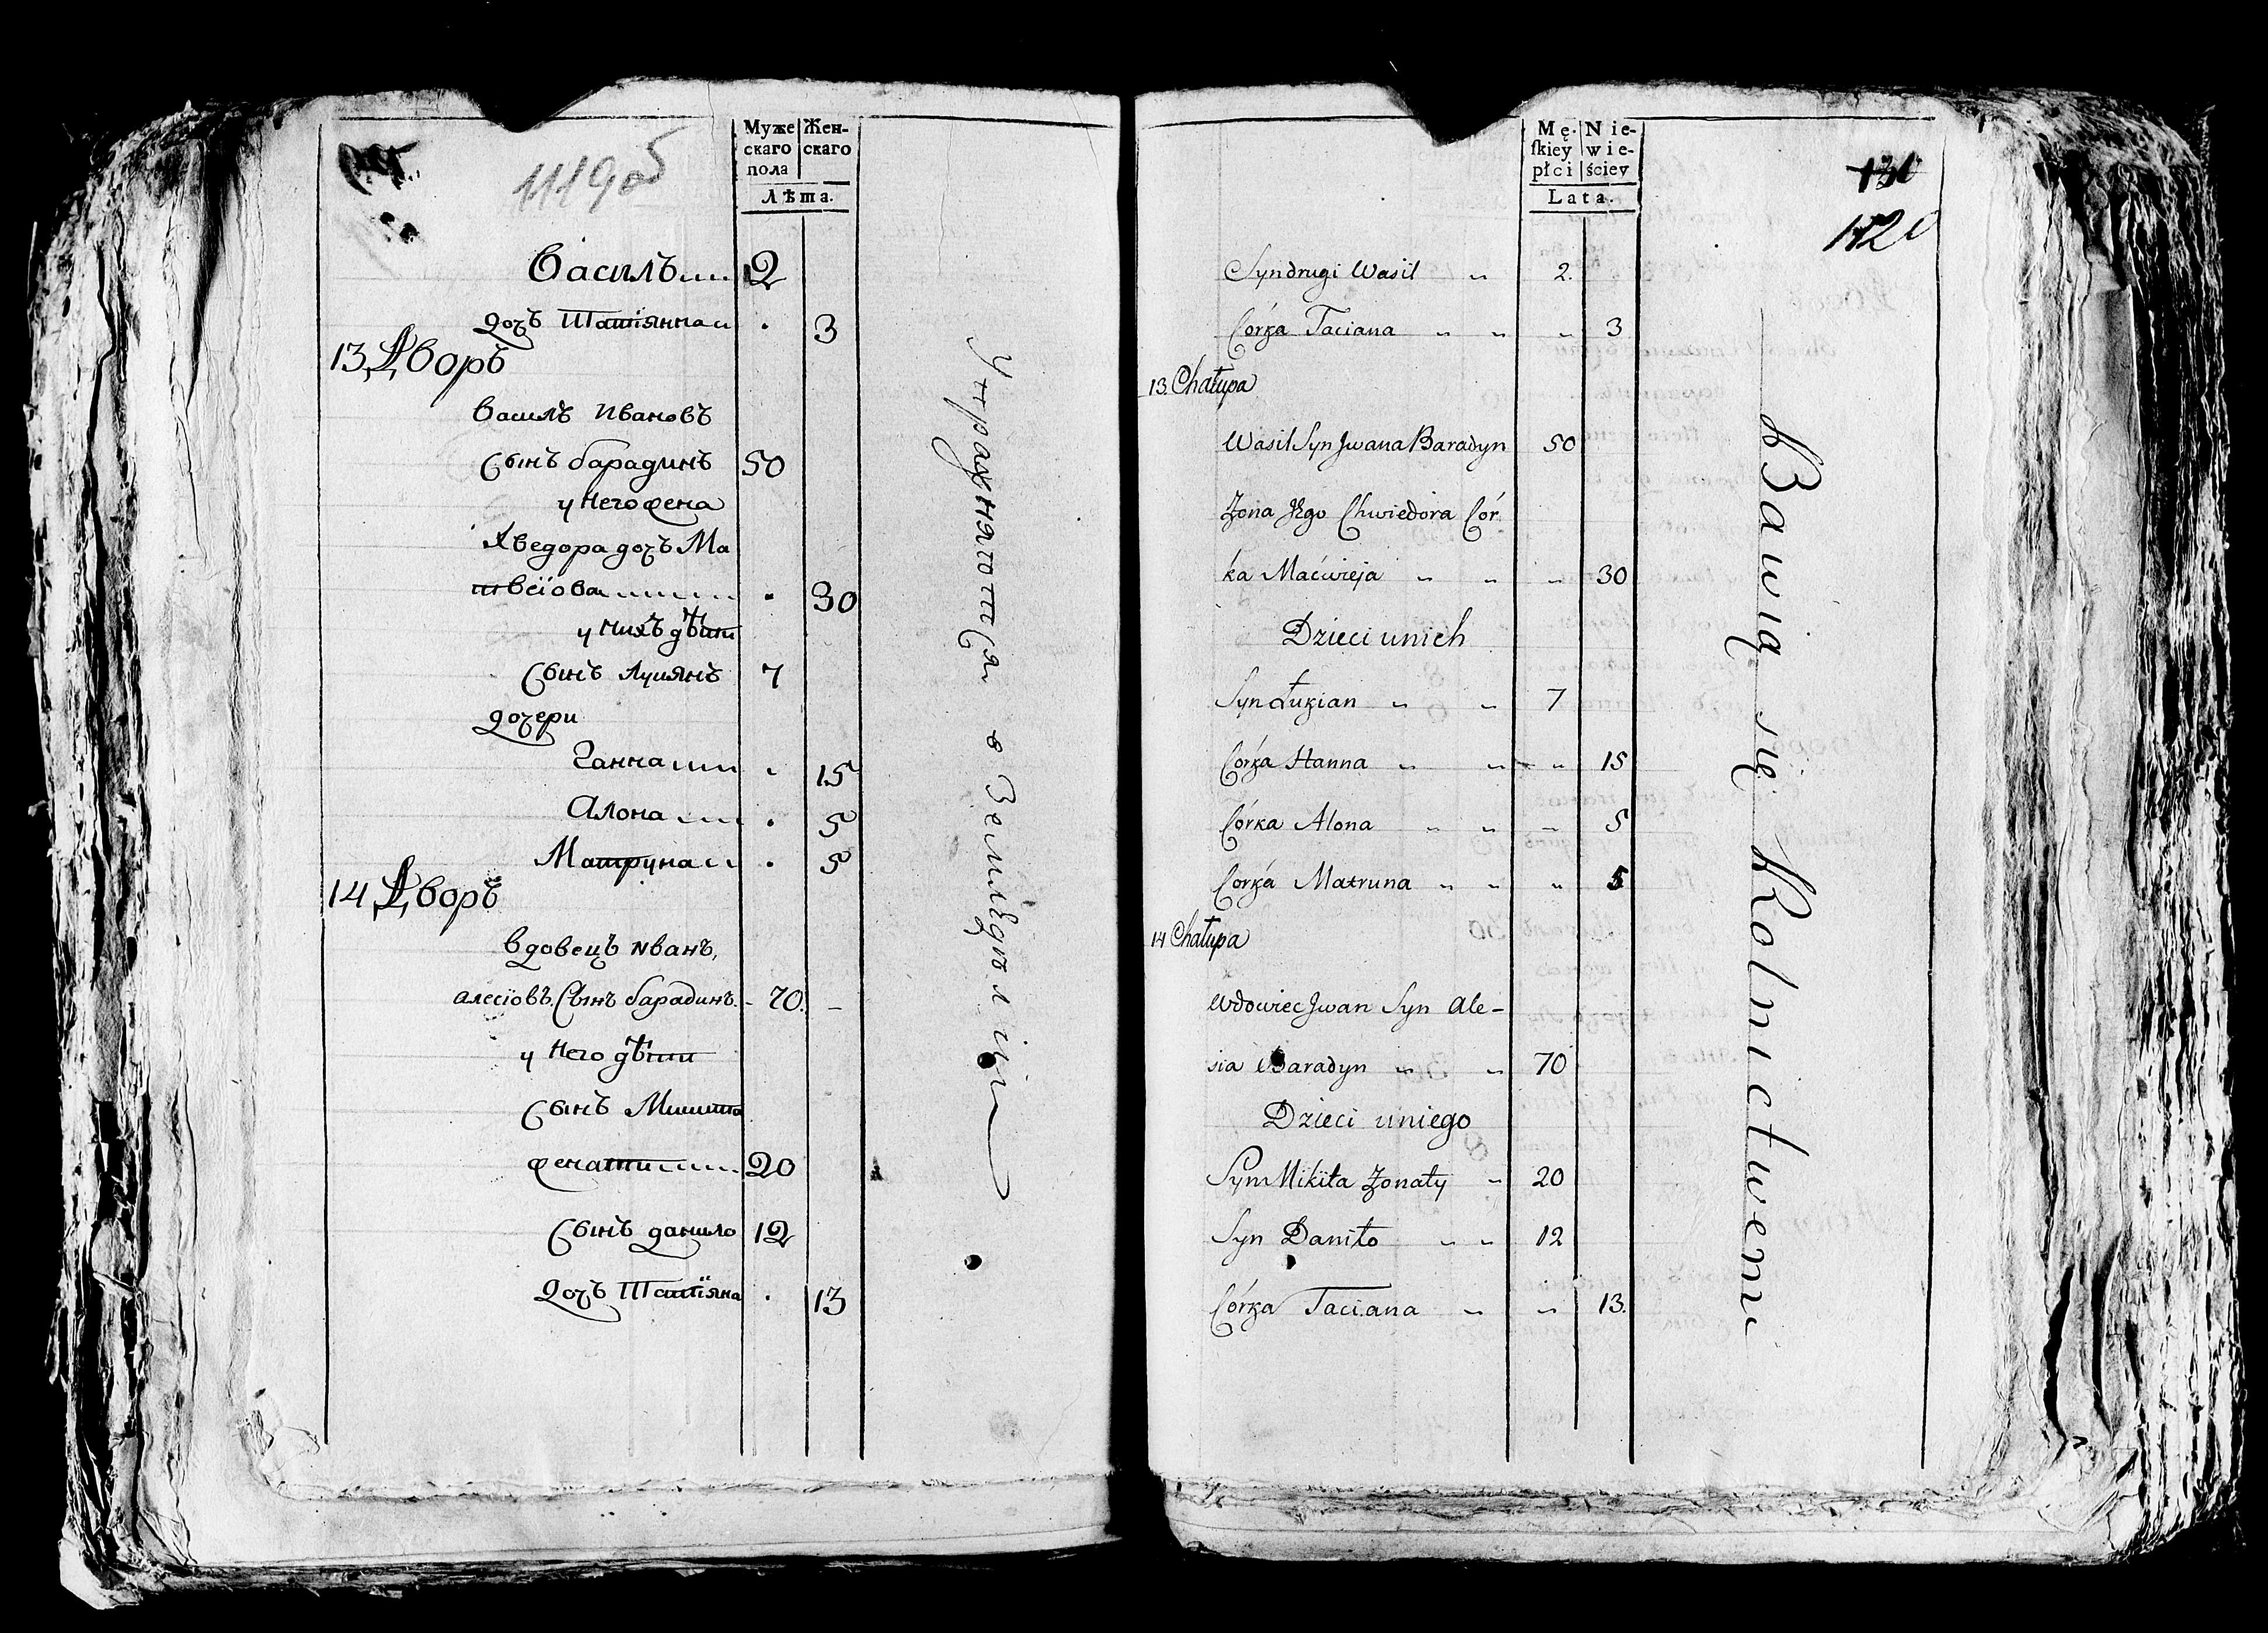 1119 об
Муже Жен-
скаго скаго
пола
Лѣта.
Василъ 2
дочъ Татіянна 3
13 Дворъ
Василъ Ивановъ
Сынъ барадинъ 50
у Него жена
Хведора дочъ Ма
твеіова 30
у Нихъ дѣти
Сынъ Лукянъ 7
дочери
Ганна 15
Алона 5
Матруна 5
14 Дворъ
вдовецъ Иванъ,
алесіовъ Сынъ барадинъ. - 70. -
у Него дѣти
Сынъ Микита
женати 20
Сынъ данило 12
Дочъ Татіяна 13
УпражняютСя в Земледѣліи
Mę- Nie-
ſkiey wie-
płci ściey
Lata.
130
1120
Syn drugi Wasil " 2.
Córka Taciana " " " 3
13. Chałupa
Wasil Syn Jwana Baradyn 50
Żona Jego Chwiedora Cór
ka Maćwieja " " " 30
Dzieci u nich
Syn Łukian " " 7
Córka Hanna " " " 15
Córka Alona " " " 5
Córka Matruna " " " 5
14 Chałupa
Wdowiec Jwan Syn Ale-
sia Baradyn " " 70
Dzieci u niego
Syn Mikita Żonaty " 20
Syn Daniło " " 12
Córka Taciana " " 13.
Bawią się Rolnictwem